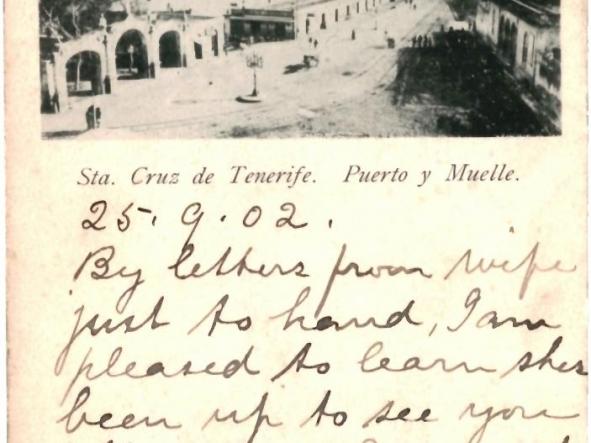 Sta. Cruz de Tenerife. Puerto y Muelle.
25. 9. 02.
By letters from wife
just to hand, I am
pleased to learn shes
been up to see you